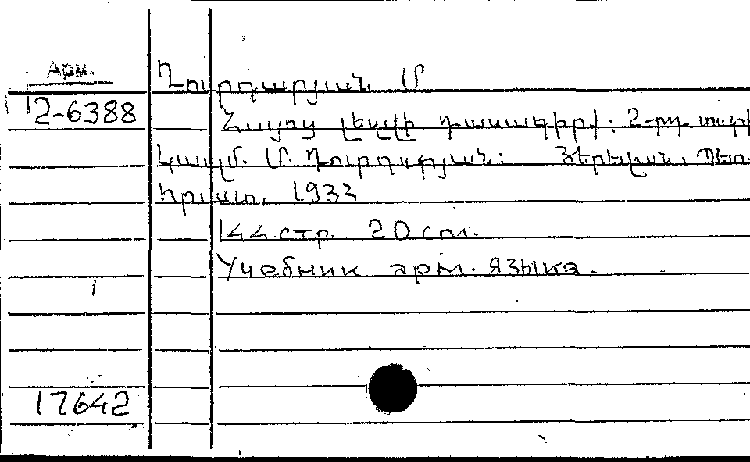 Арм.
12-6388
Ղուրղարյան. Մ
Հայոց լեզվի դասագիրք: 2-րդ տարի
Կազմ. Մ. Ղուրղարյան: Յերևան, Պետ
հրատ. 1933
144 стр. 20 см.
Учебник арм. языка.
17642